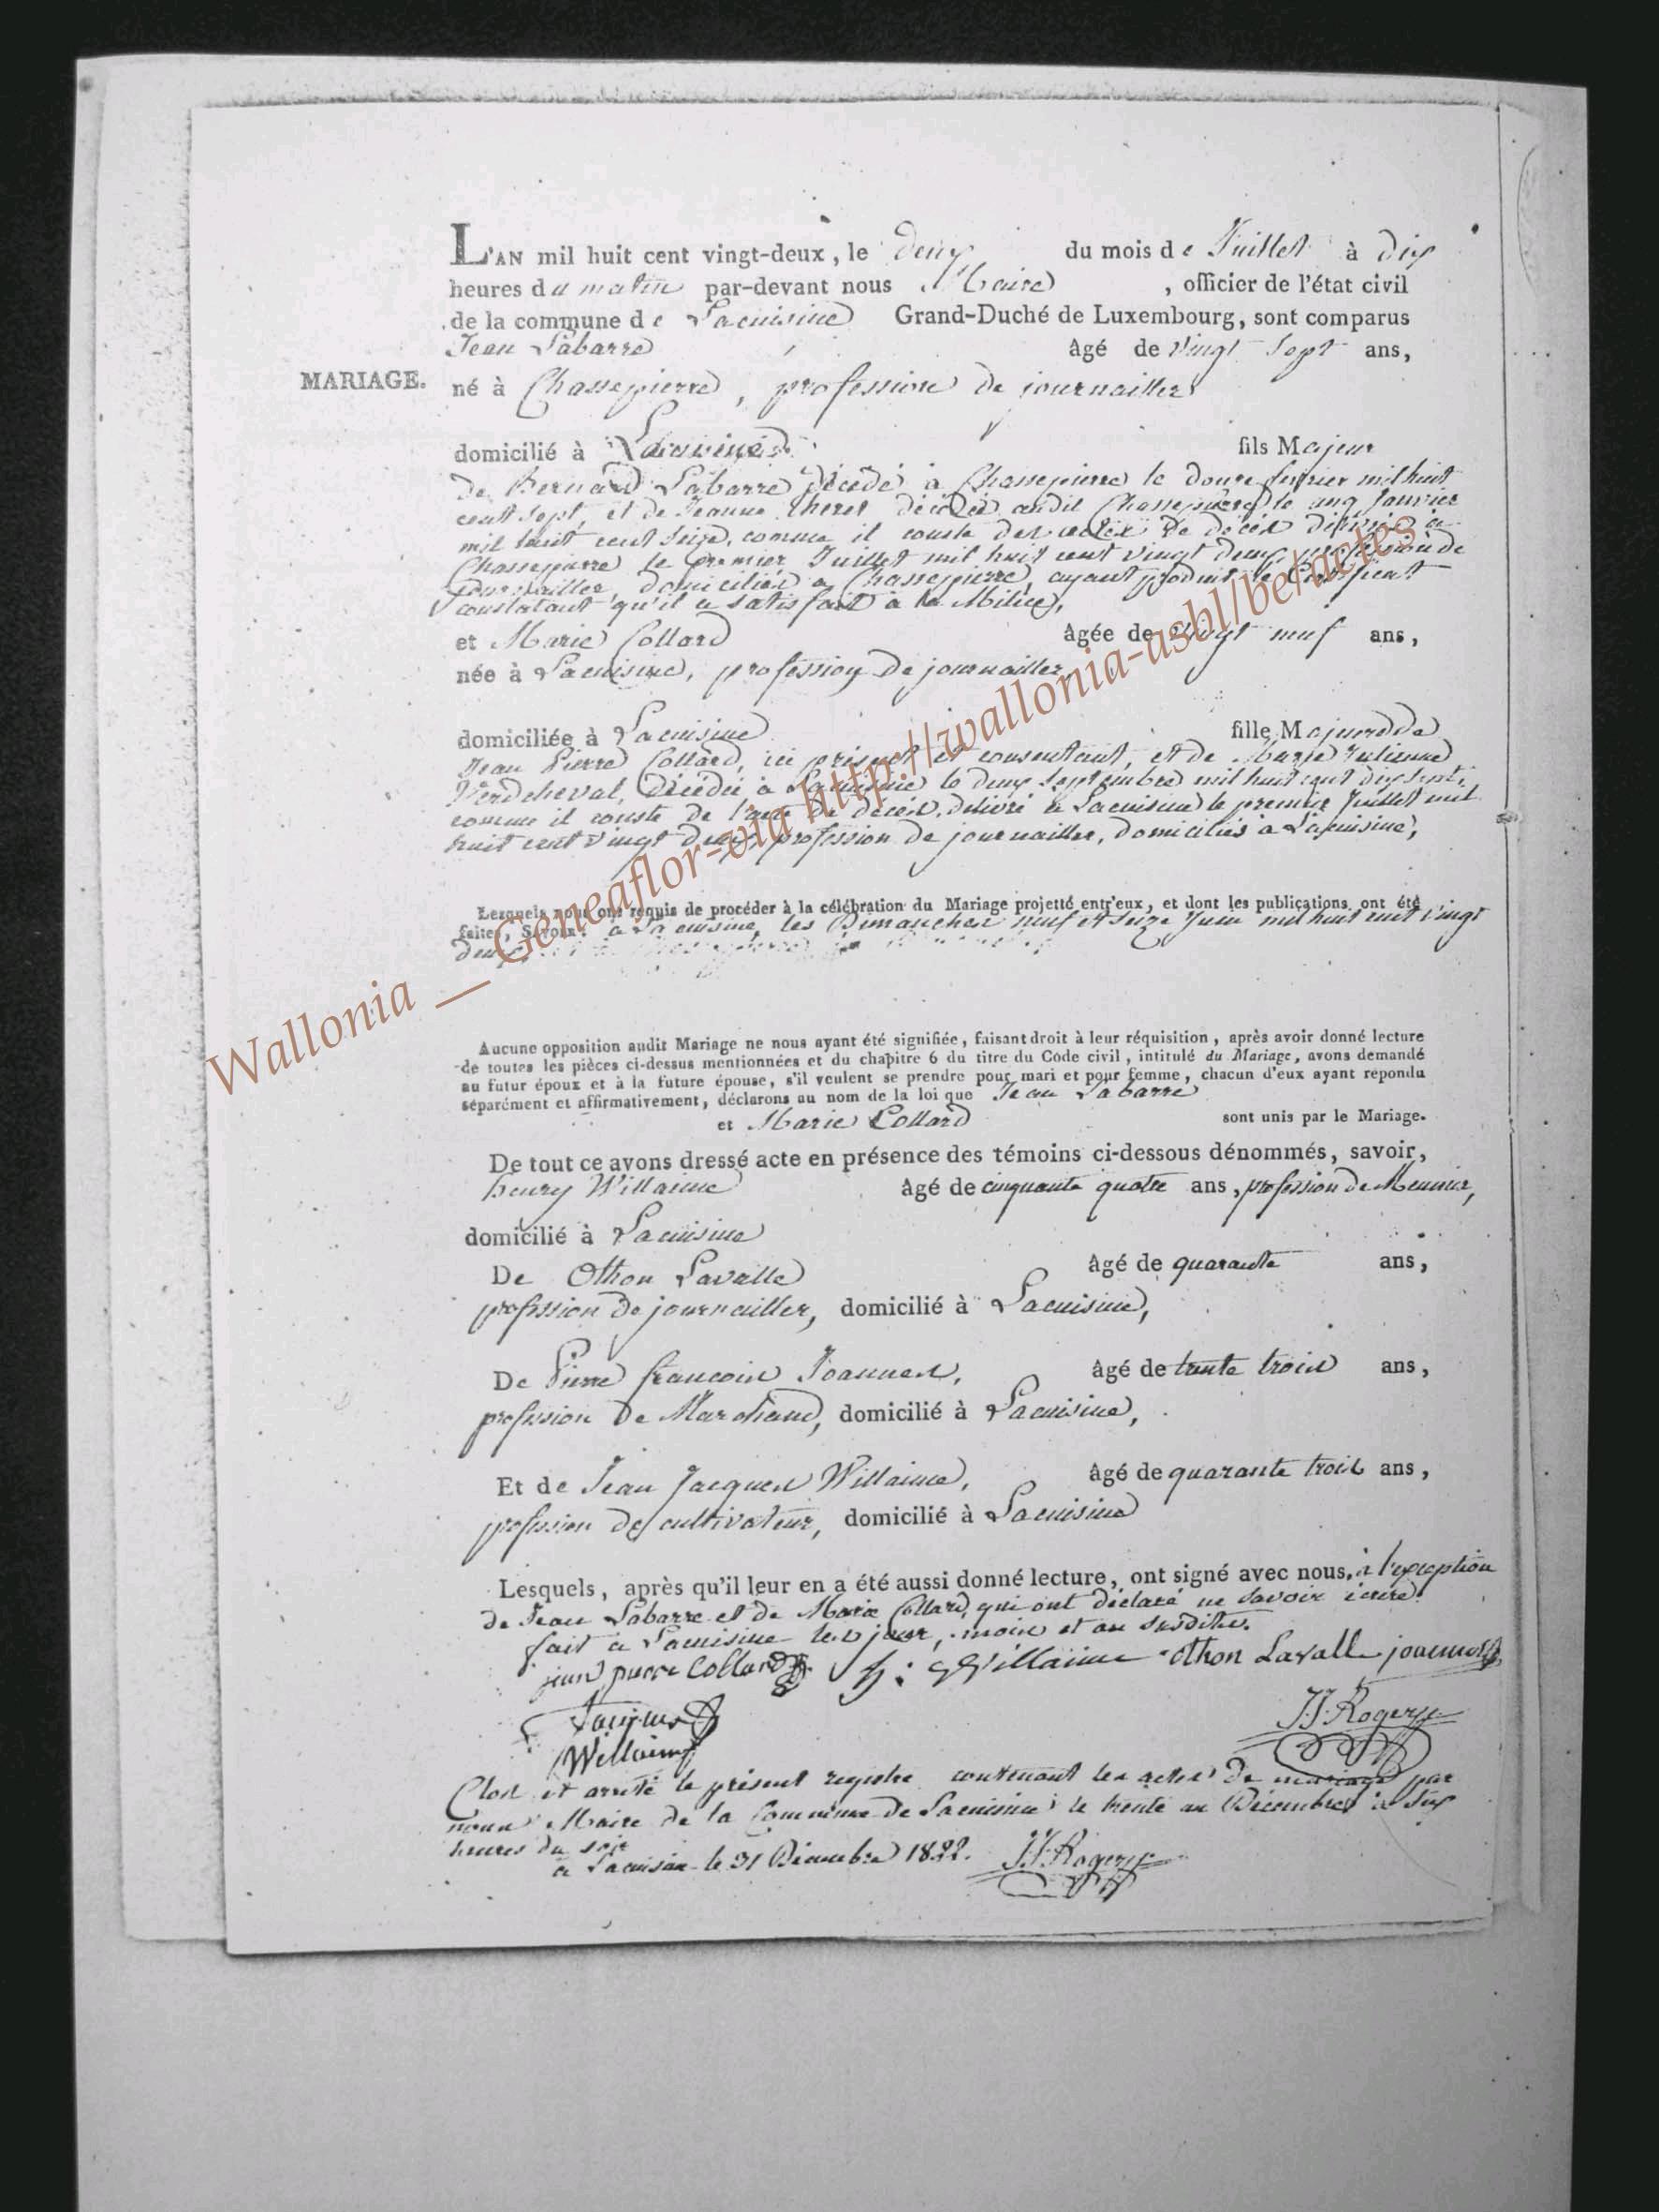 L'AN mil huit cent vingt-deux, le deux du mois de Juillet à dix
heures du matin par-devant nous Maire , officier de l'état civil
de la commune de Lacuisine Grand-Duché de Luxembourg, sont comparus
Jean Labarre âgé de vingt sept ans,
MARIAGE. né à Chassepierre, profession de journailler
domicilié à Lacuisine fils Majeur
de Bernard Labarre décédé à Chassepierre le douze fevrier mil huit
cent sept, et de Jeanne theret décédée audit Chassepierre le cinq Janvier
mil huit cent seize, comme il conste des actes de décès délivrés à
Chassepierre le premier Juillet mil huit cent vingt deux, profession de
journailler, domiciliés a Chassepierre, ayant produit le Certificat
constatant qu'il a satisfait à la Milice,
et Marie Collard Agée de vingt neuf ans,
née à Lacuisine, profession de journailler,
domiciliée à Lacuisine fille Majeure de
Jean Pierre Collard, ici présent et consentant, et de Marie Julienne
Verdcheval, décédée à Lacuisine le deux Septembre mil huit cent dix sept,
comme il conste de l'acte de décès, délivré à Lacuisine le premier Juillet mil
huit cent vingt deux, profession de journailler, domiciliés à Lacuisine,
Lesquels nous ont requis de procéder à la célébration du Mariage projetté entr'eux, et dont les publications ont été
faites, Savoir: à Lacuisine, les Dimanches neuf et seize Juin mil huit cent vingt
deux,
Aucune opposition audit Mariage ne nous ayant été signifiée, faisant droit à leur réquisition, après avoir donné lecture
de toutes les pièces ci-dessus mentionnées et du chapitre 6 du titre du Code civil, intitulé du Mariage, avons demandé
au futur époux et à la future épouse, s'il veulent se prendre pour mari et pour femme, chacun d'eux ayant répondu
séparément et affirmativement, déclarons au nom de la loi que Jean Labarre
et Marie Collard sont unis par le Mariage.
De tout ce avons dressé acte en présence des témoins ci-dessous dénommés, savoir,
henry Willaime âgé de cinquante quatre ans, profession de Meunier,
domicilié à Lacuisine
De Othon Lavalle âgé de quarante ans,
profession de journailler, domicilié à Lacuisine,
De Pierre francois Joannes, âgé de trente trois ans,
profession de Marchand, domicilié à Lacuisine,
Et de Jean Jacques Willaime, âgé de quarante trois ans,
profession de cultivateur, domicilié à Lacuisine
Lesquels, après qu'il leur en a été aussi donné lecture, ont signé avec nous, à l'exception
de Jean Labarre et de Marie Collard, qui ont déclaré ne savoir écrire.
fait à Lacuisine les jour, mois et an susdits.
jean pierre Collard h: Willaime othon Lavalle
Jacques J.J. Rogery
Willaime
Clos et arrêté le présent registre contenant les actes de mariage par
nous Maire de la Commune de Lacuisine le trente un Décembre à six
heures du soir
à Lacuisine le 31 Décembre 1822. J.J. Rogery
Wallonia __ Geneaflor-via http://wallonia-asbl/be/actes